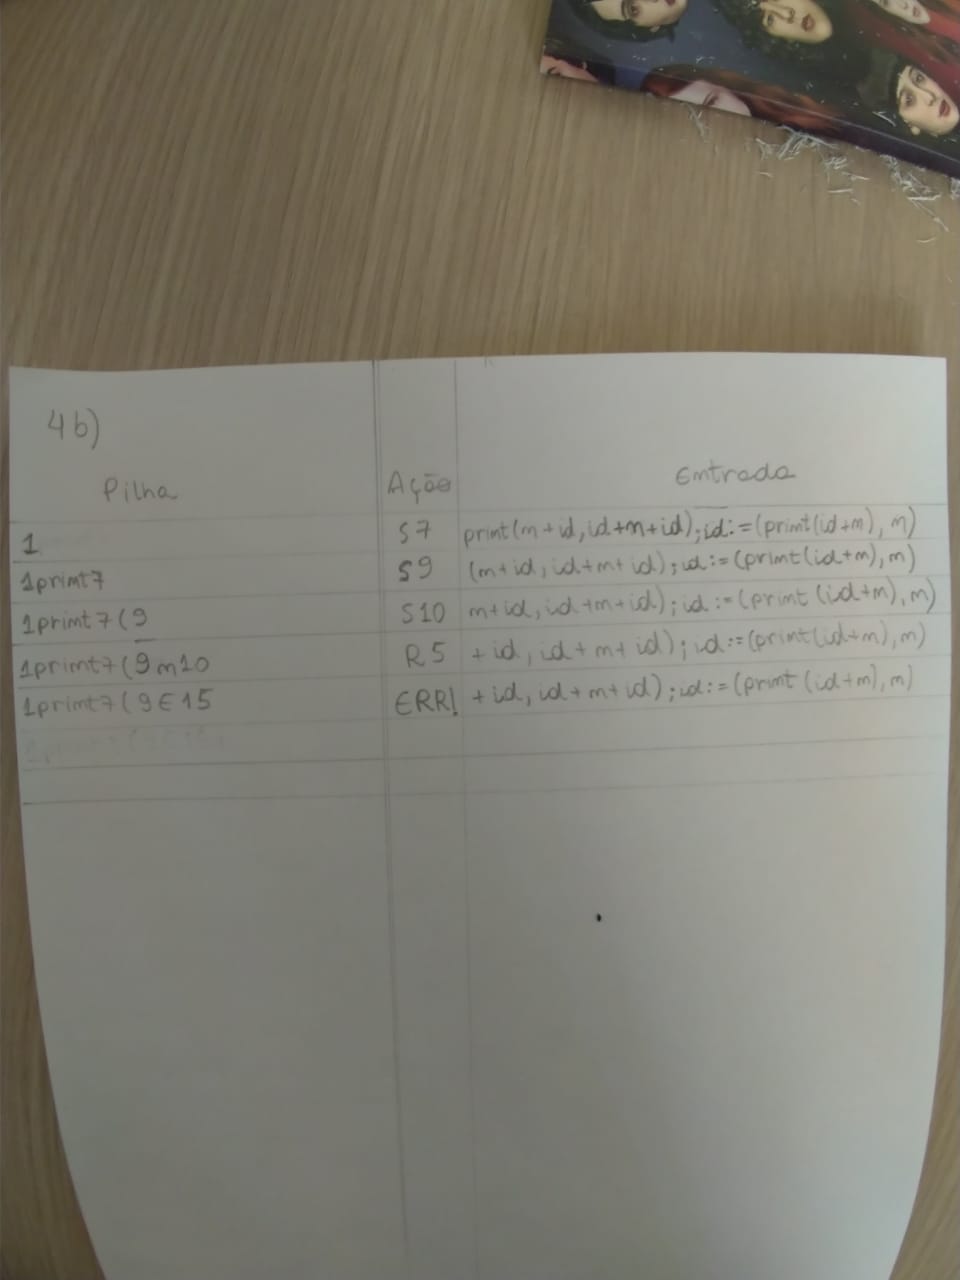 4b)
Pilha Ação Entrada
1 S7 print(m+id,id+m+id);id:=(print(id+m),m)
1print7 S9 (m+id,id+m+id);id:=(print(id+m),m)
1print7(9 S10 m+id,id+m+id);id:=(print(id+m),m)
1print7(9m10 R5 +id,id+m+id);id:=(print(id+m),m)
1print7(9E15 ERR! +id,id+m+id);id:=(print(id+m),m)